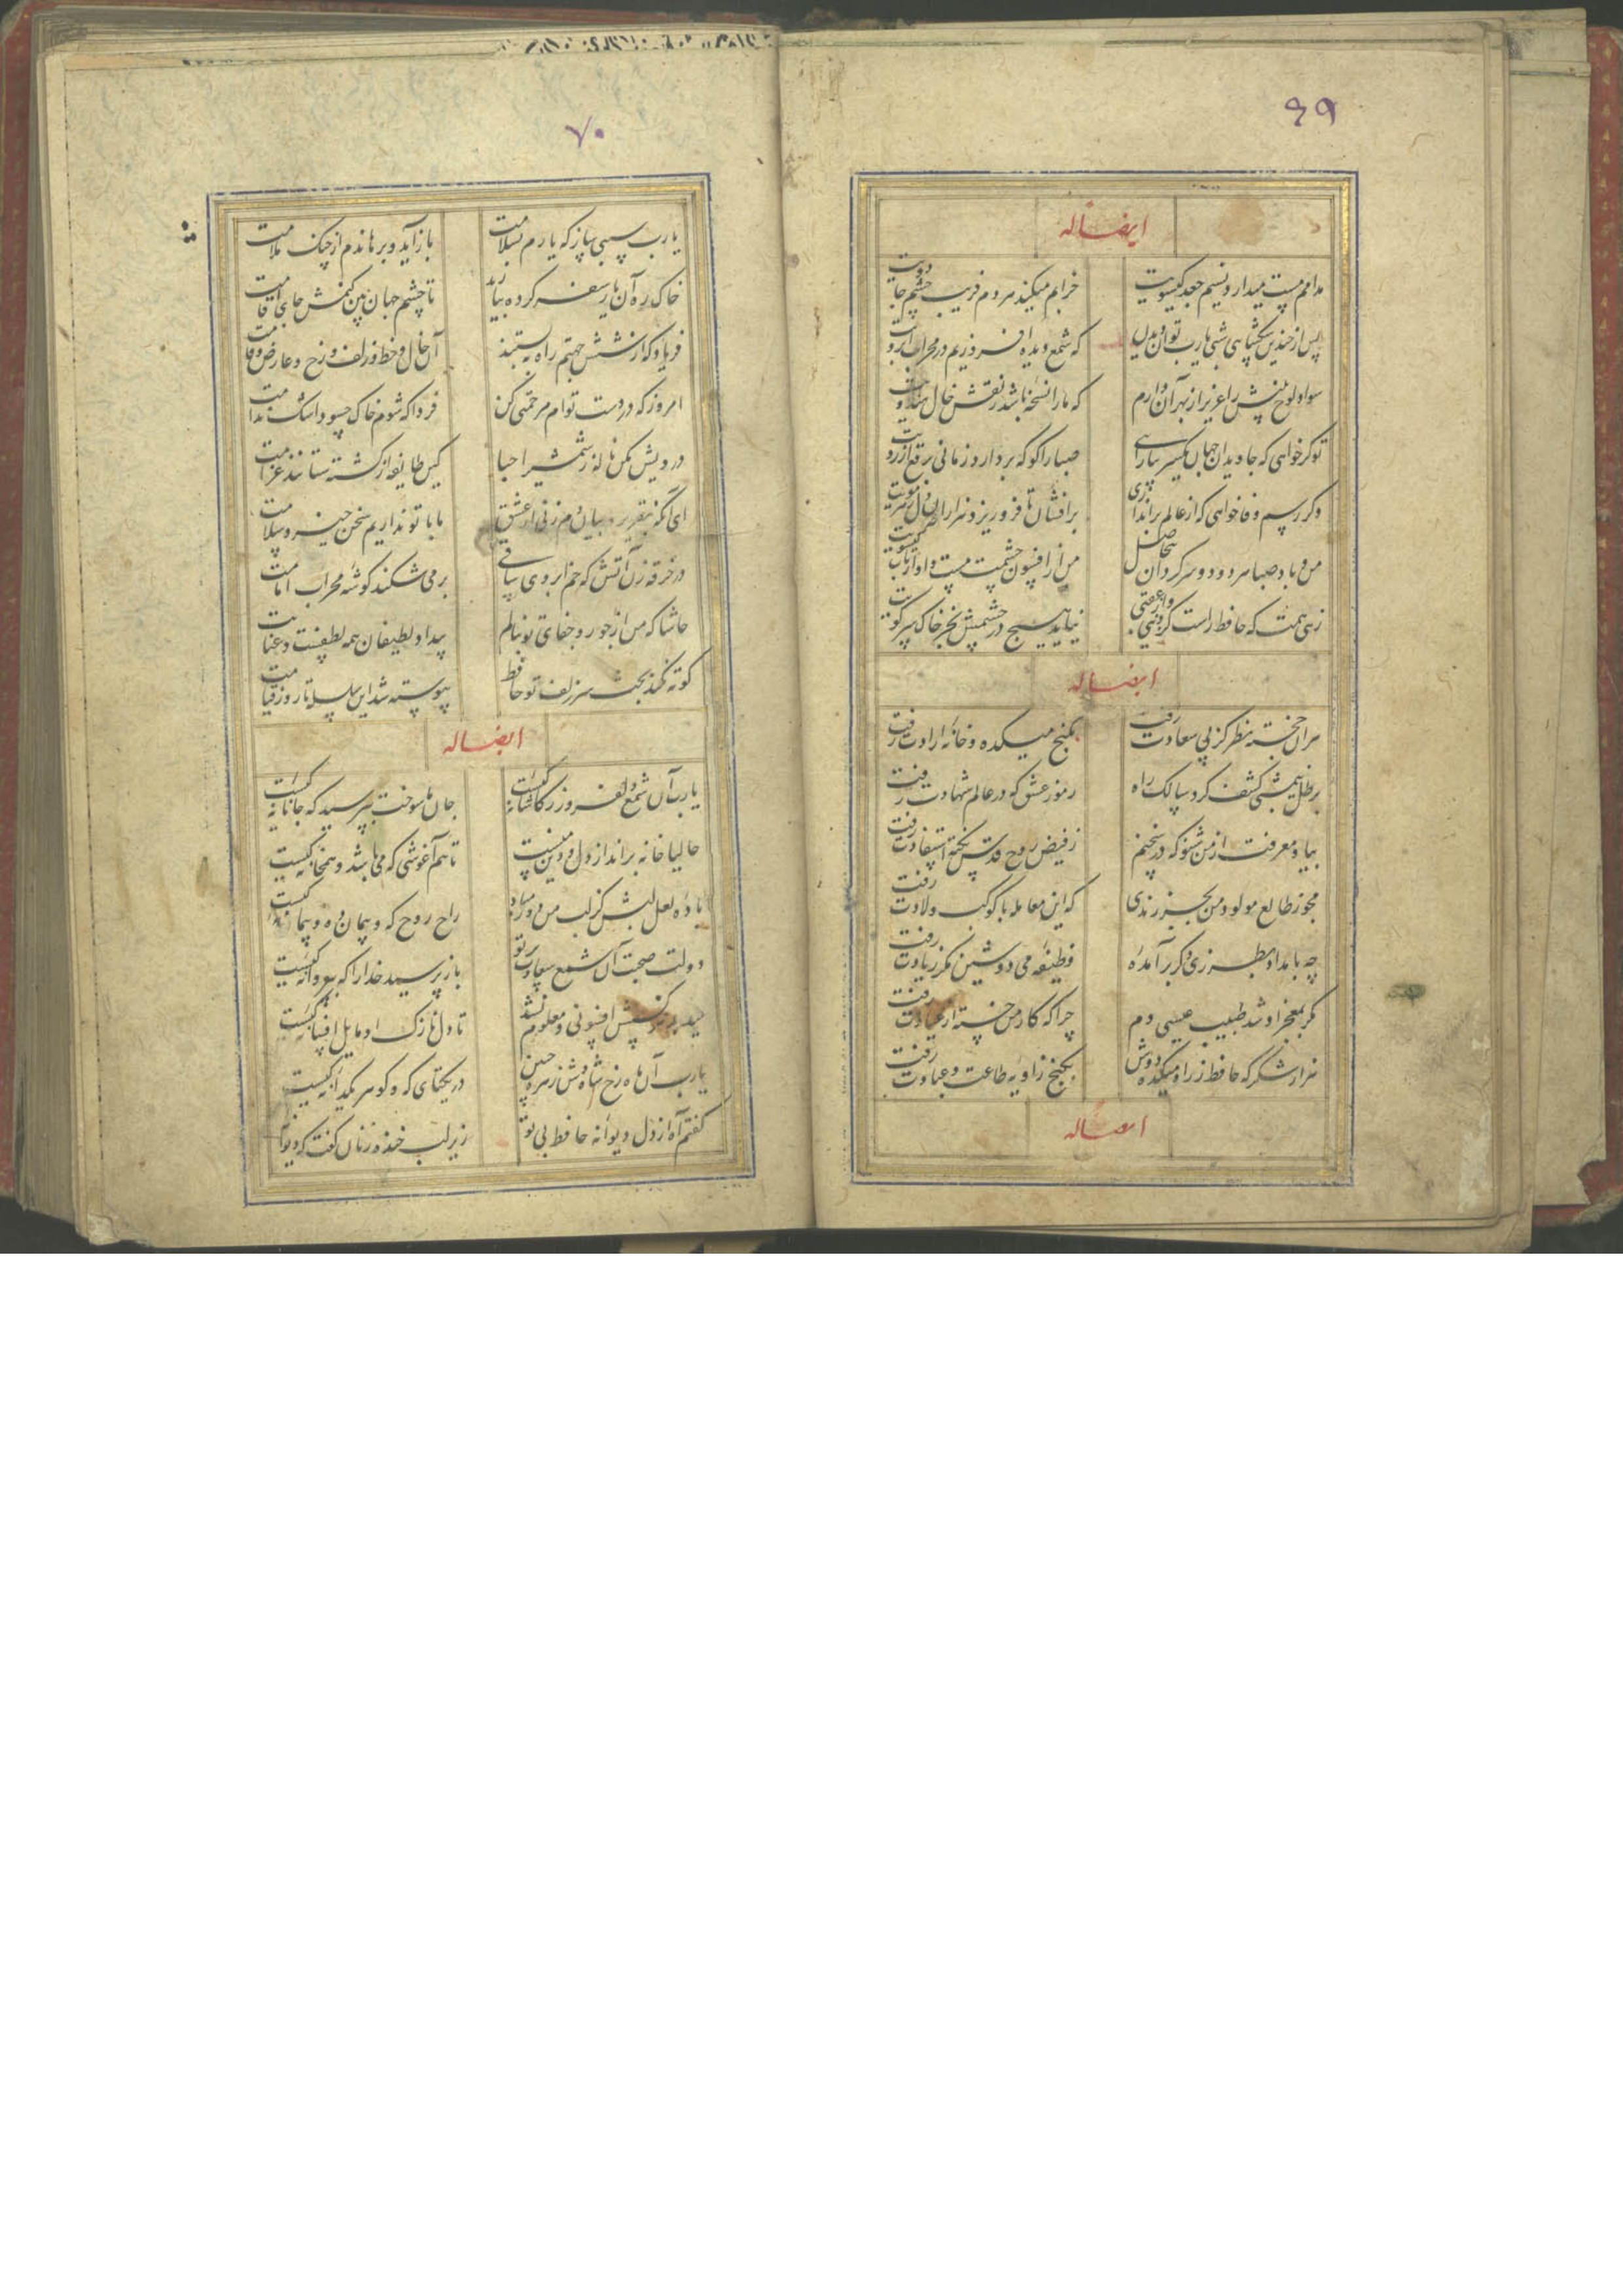 ۶۹
ایضاله
مدامم مست میدارد نسیم جعد کیسویت
خرابم میکند مردم فریب چشم جادویت
پس از چندین شکیبایی شبی یارب توان دیدن
که شمع دیده افروزیم در محراب ابرویت
سواد لوح بینش را عزیز از بهر آن دارم
که ما را نسخه باشد ز نقش خال هندویت
تو کر خواهی که جاویدان جهان یکسر بیارایی
صبا را کو که بردارد زمانی برقع از رویت
وکر رسم وفا خواهی که از عالم براندازی
برافشان تا فرو ریزد هزاران دل ز هر مویت
من و باد صبا سرود دو سرکردان بیحاصل
من از افسون چشمت مست و او از تاب کیسویت
زهی همت که حافظ راست کز دنیی و از عقبی
نیاید هیچ در چشمش بجز خاک سر کویت
ایضاله
هر آن خجسته نظر کز پی سعادت رفت
بکنج میکده و خانه ارادت رفت
برطل نیمشبی کشف کرد سالک راه
رموز عشق که در عالم شهادت رفت
بیا و معرفت از من شنو که در سخنم
ز فیض روح قدس نکته استفادت رفت
مجو ز طالع مولود من بجز رندی
که این معامله با کوکب ولادت رفت
چه بامداد بطرزی دکر برآمده
وظیفه می دوشین مکر زیادت رفت
مکر بمعجز او شد طبیب عیسی دم
چرا که کار من خسته از عیادت رفت
هزار شکر که حافظ ز راه میکده دوش
بکنج زاویه طاعت و عبادت رفت
ایضاله
۷۰
یارب سببی ساز که یارم بسلامت
بازآید و برهاندم از چنک ملامت
خاک ره آن یار سفر کرده بیارید
تا چشم جهان بین کنمش جای اقامت
فریاد که از شش جهتم راه ببستند
آن خال و خط و زلف و رخ و عارض و قامت
امروز که در دست توام مرحمتی کن
فردا که شوم خاک چه سود اشک ندامت
درویش مکن ناله ز شمشیر احبا
کین طایفه از کشته ستانند غرامت
ای آنکه بتقریر و بیان دم زنی از عشق
با با تو نداریم سخن خیر و سلامت
در خرقه زن آتش که خم ابروی ساقی
بر می شکند کوشه محراب امامت
حاشا که من از جور و جفای تو بنالم
بیداد لطیفان همه لطفست و عنایت
کوته نکند بحث سر زلف تو حافظ
پیوسته شد این سلسله تا روز قیامت
ایضاله
یارب آن شمع دلفروز ز کاشانه کیست
جان ما سوخت بپرسید که جانانه کیست
حالیا خانه برانداز دل و دین منست
تا هم آغوشی که می باشد و همخانه کیست
باده لعل لبش کز لب من دور مباد
راح روح که و پیمان ده و پیمانه کیست
دولت صحبت آن شمع سعادت پرتو
باز پرسید خدا را که به پروانه کیست
میدمد هر کسش افسونی و معلوم نشد
تا دل نازک او مایل افسانه کیست
یارب آن ماه رخ شاه وش زهره جبین
در یکتای که و کوهر یکدانه کیست
کفتم آه از دل دیوانه حافظ بی تو
زیر لب خنده زنان کفت که دیوانه